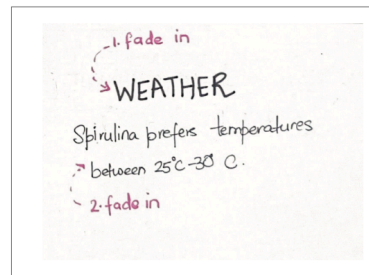 1. fade in
WEATHER
Spirulina prefers temperatures
between 25°C-30° C.
2. fade in